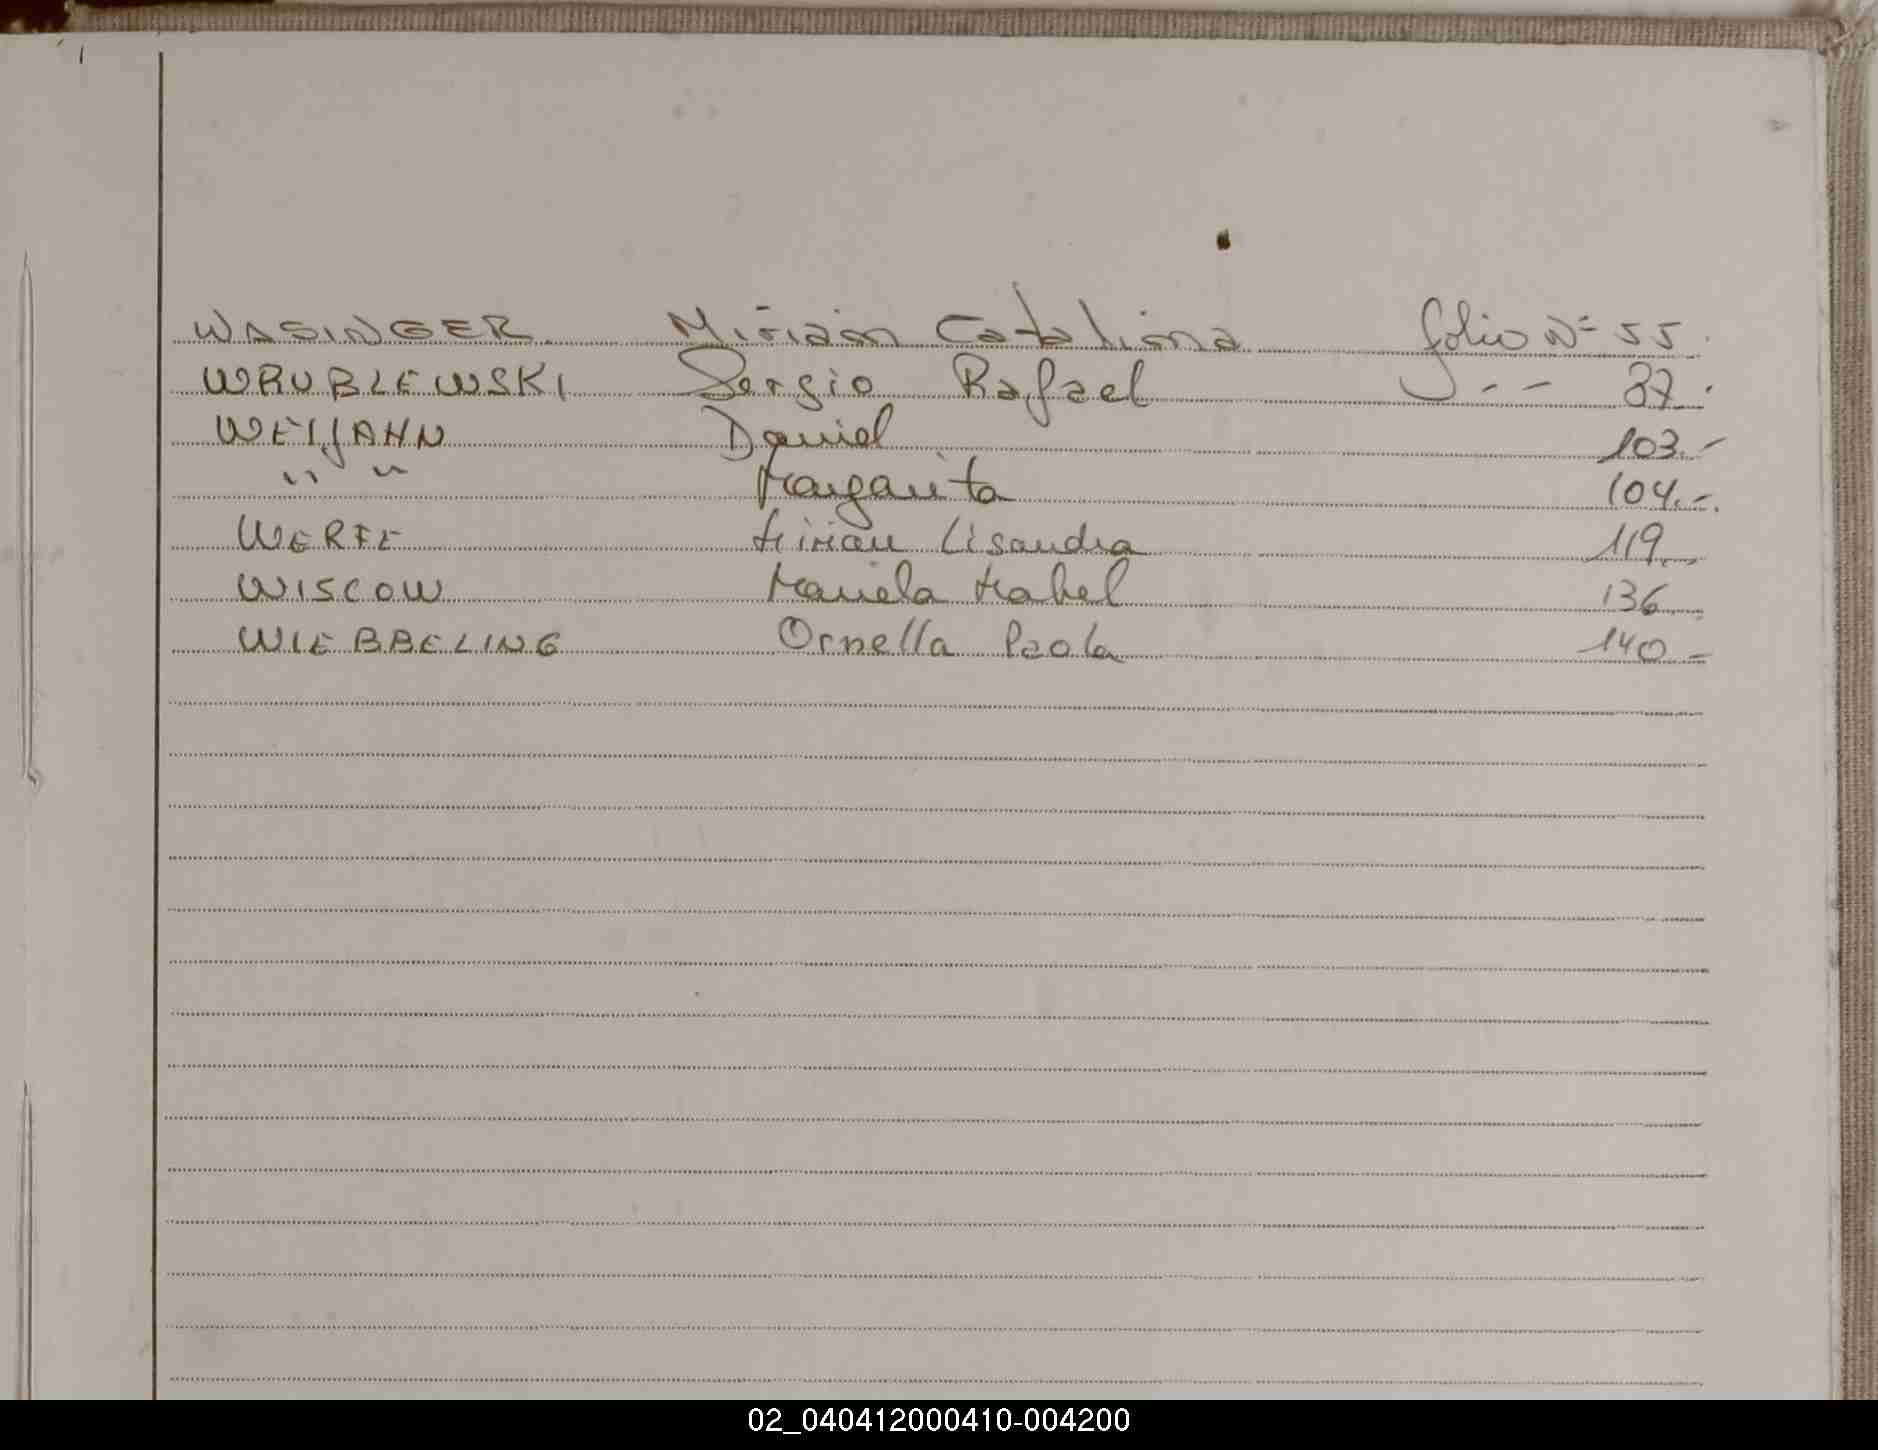 WASINGER Miriam Catalina folio Nº 55.
WRUBLEWSKI Sergio Rafael " - - 87.
WEIJAHN Daniel 103.-
" " " Margarita 104.-.
WERFE Mirian Lisandra 119.-
WISCOW Mariela Mabel 136.
WIEBBELING Ornella Paola 140.-
02_040412000410-004200